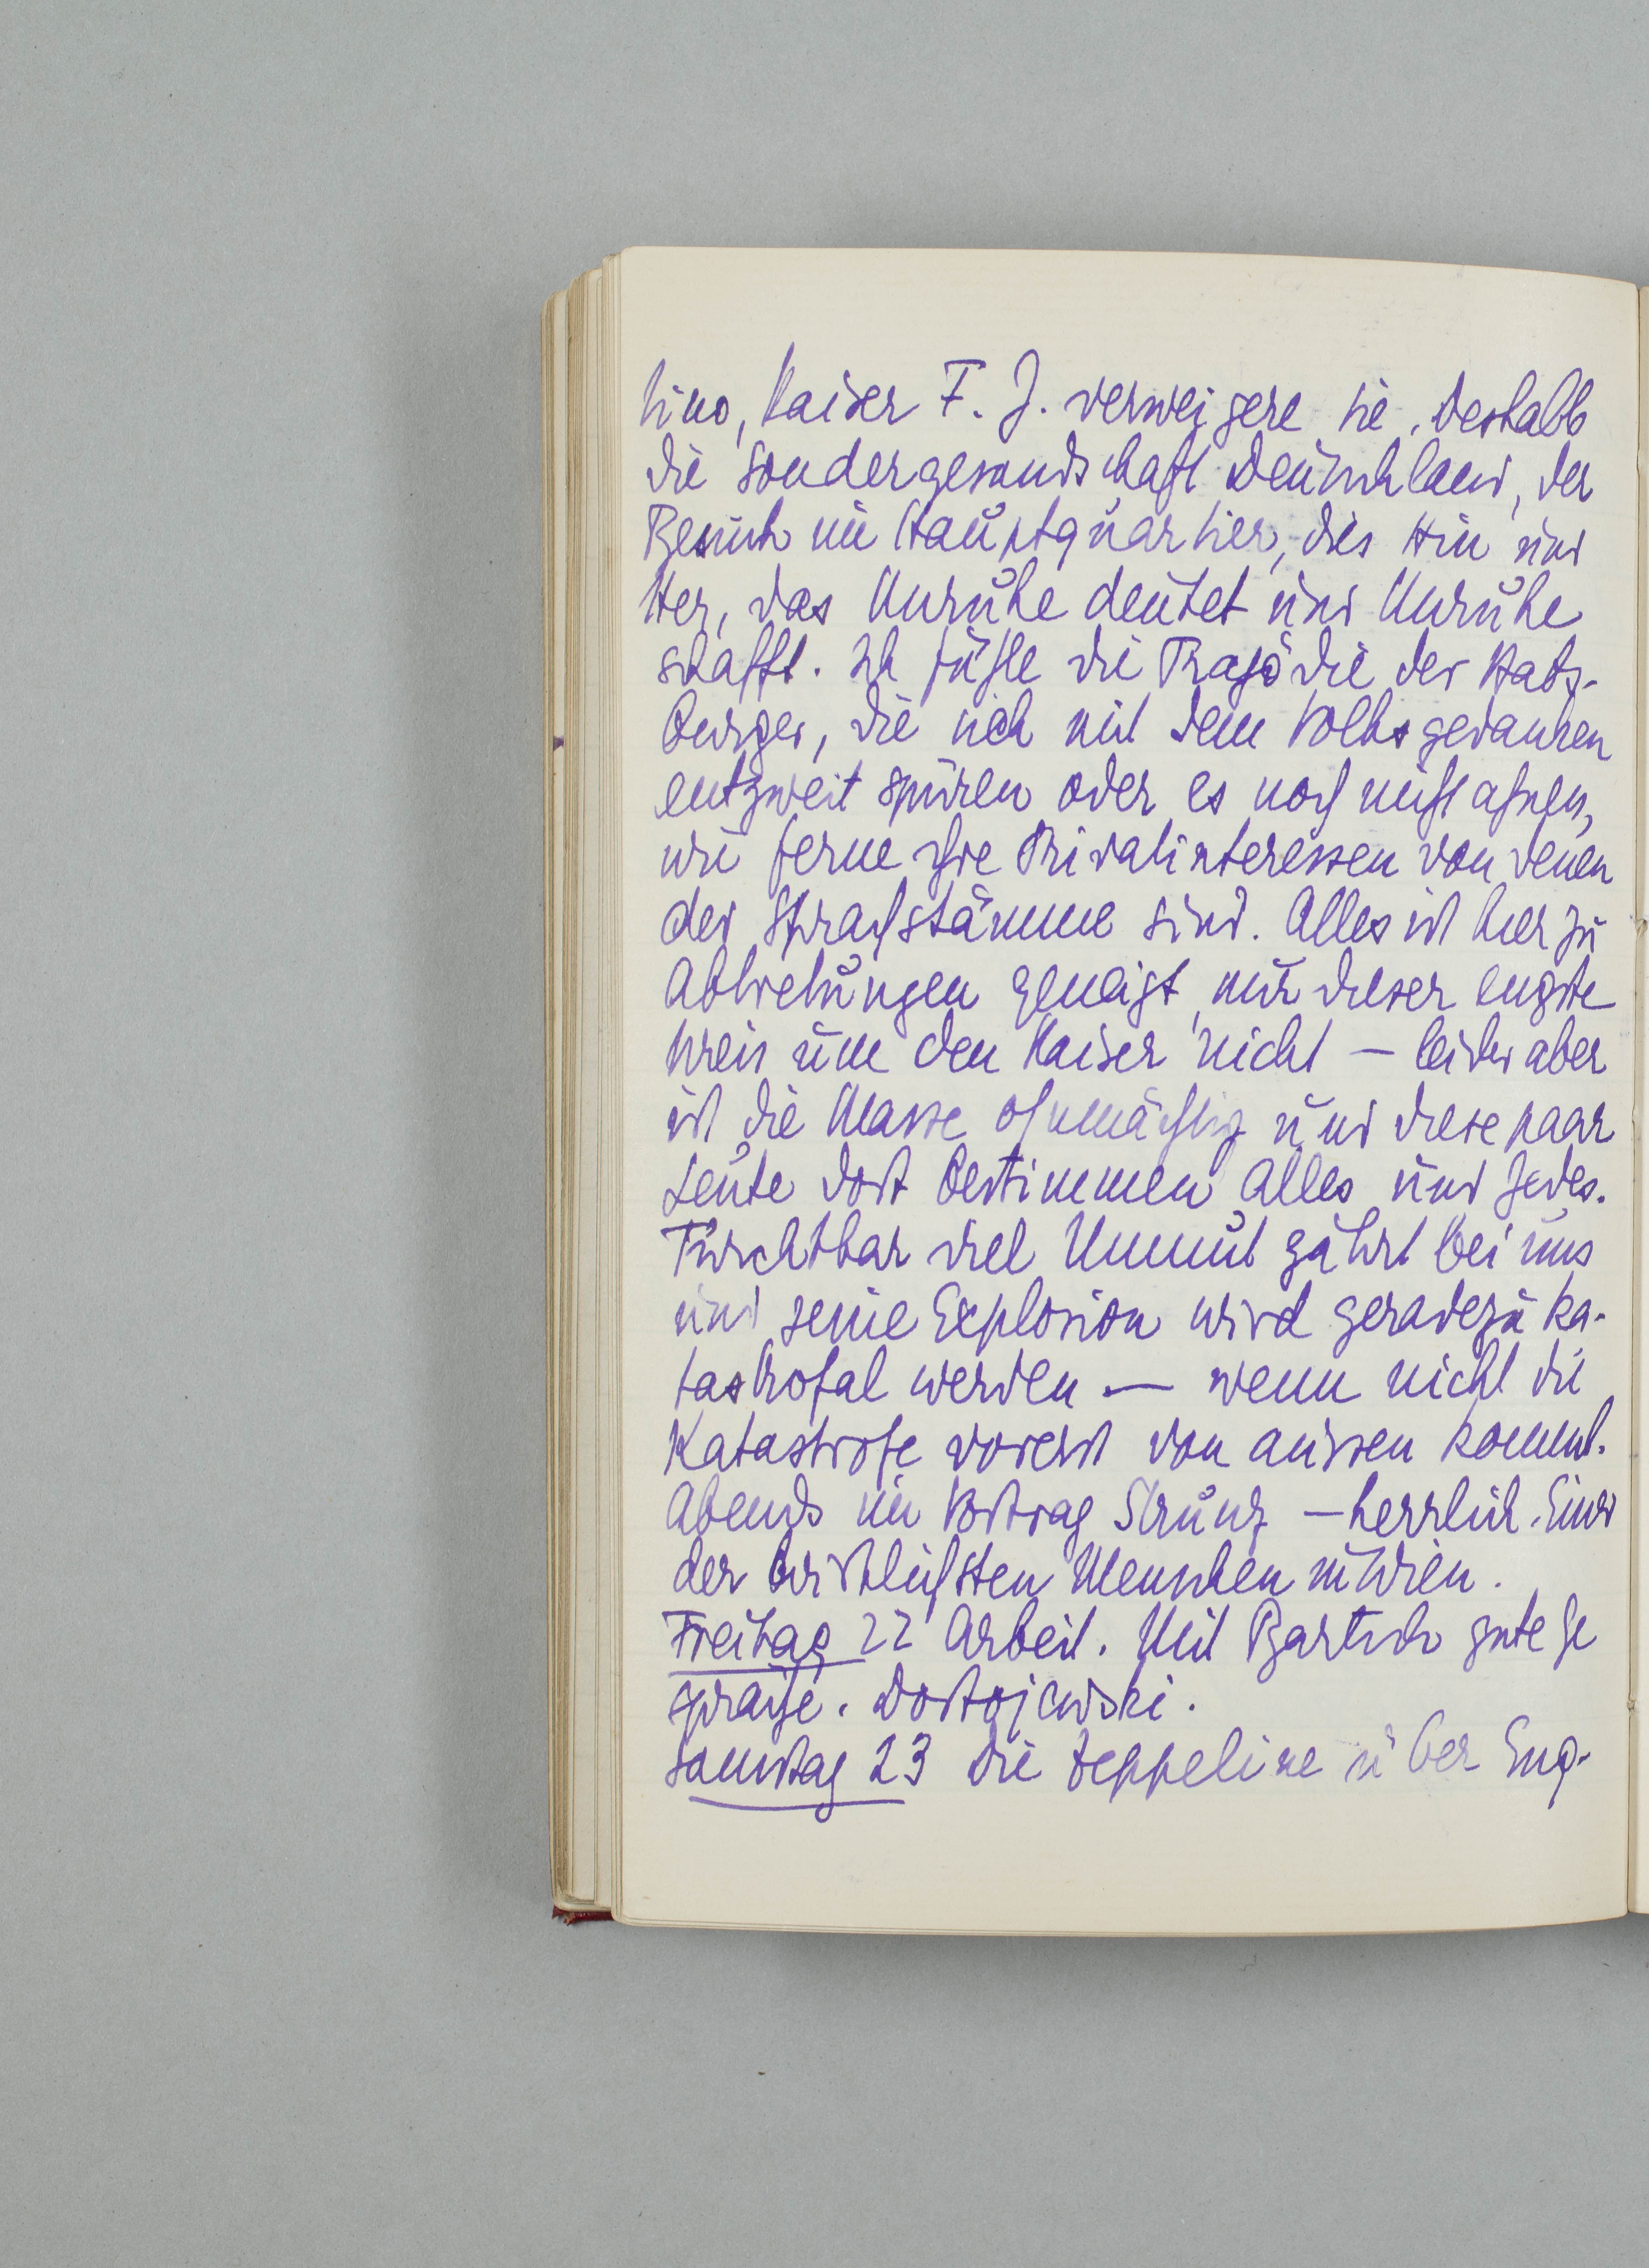 tino, Kaiser F. J. verweigere sie. Deshalb
die Sondergesandschaft Deutschlands, der
Besuch im Hauptquartier, dies Hin und
Her, das Unruhe deutet und Unruhe
schafft. Ich fühle die Tragödie der Habs-
burger, die sich mit dem Volksgedanken
entzweit spüren oder es noch nicht ahnen,
wie ferne ihre Privatinteressen von denen
der Sprachstämme sind. Alles ist hier zu
Abtretungen geneigt, nur dieser engste
Kreis um den Kaiser nicht – leider aber
ist die Masse ohnmächtig und diese paar
Leute dort bestimmen Alles und Jedes.
Furchtbar viel Unmut gährt bei uns
und seine Explosion wird geradezu ka-
tastrofal werden – wenn nicht die
Katastrofe vorerst von aussen kommt.
Abends im Vortrag Strunz – herrlich. Einer
der christlichsten Menschen in Wien.
Freitag 22 Arbeit. Mit Bartsch gute Ge
spräche. Dostojewski.
Samstag 23 die Zeppeline über Eng-